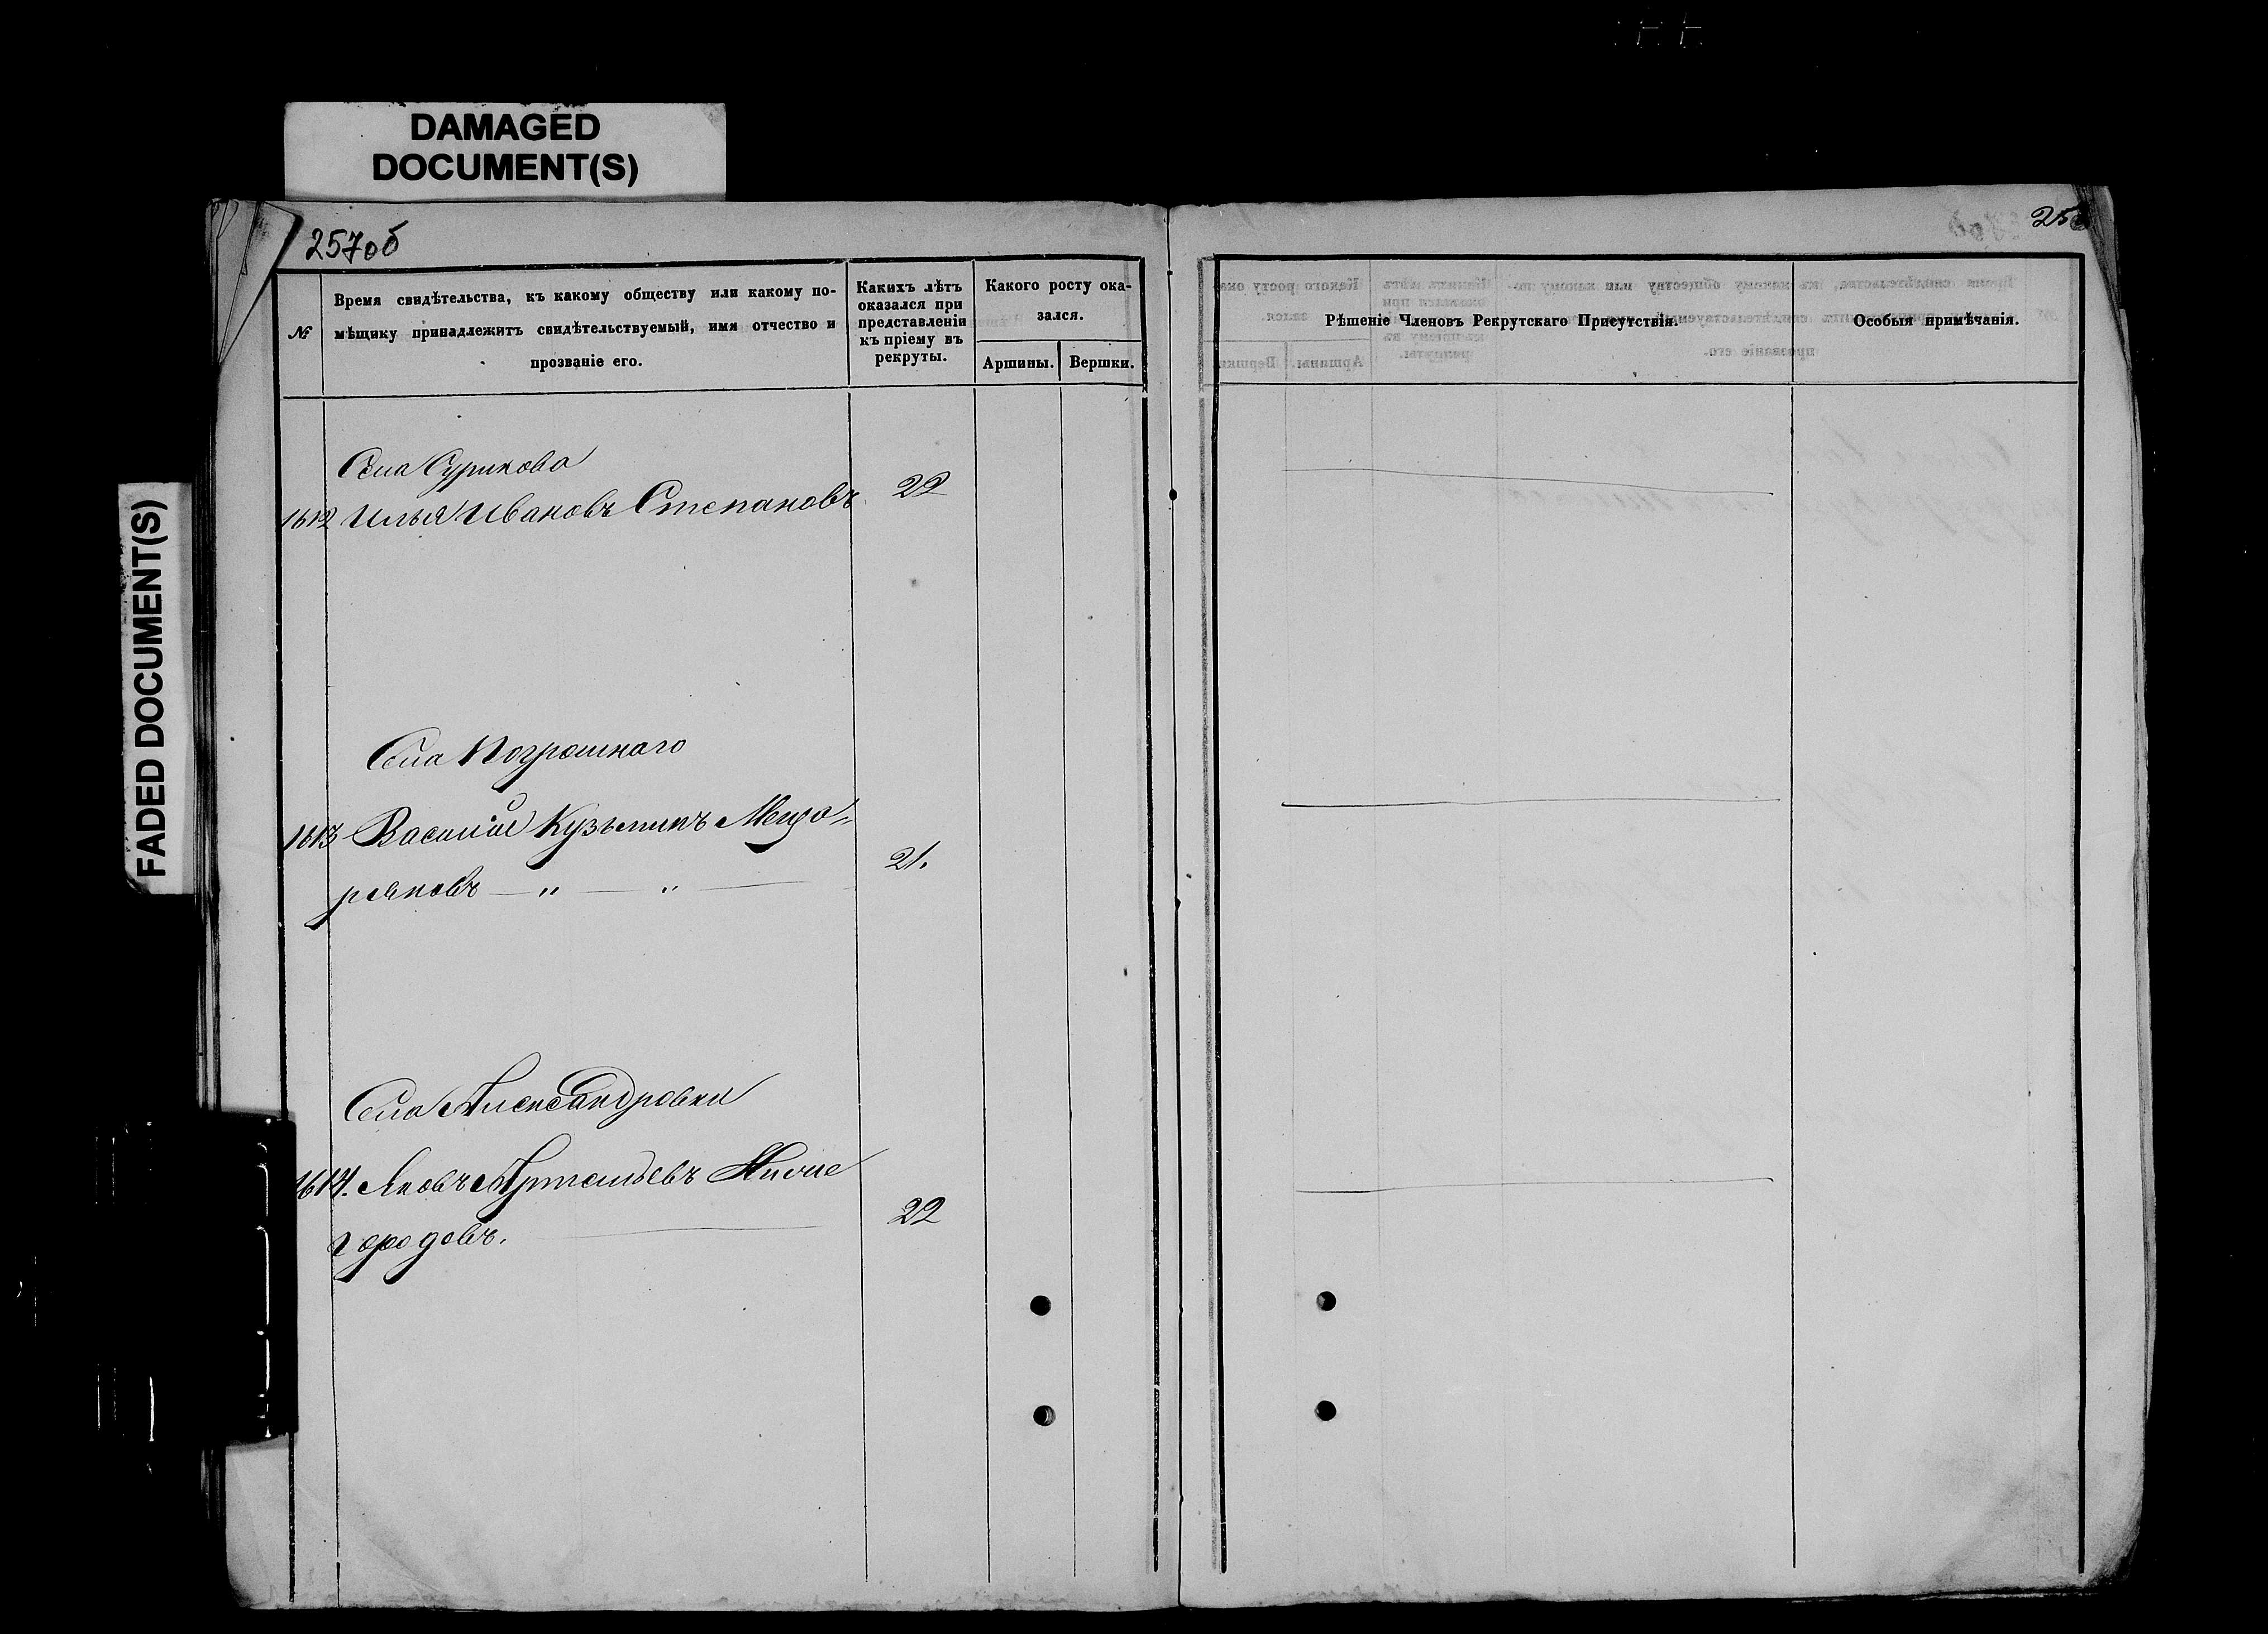 DAMAGED
DOCUMENT(S)
FADED DOCUMENT(S)
257об
№
Время свидѣтельства, къ какому обществу или какому по-
мѣщику принадлежитъ свидѣтельствуемый, имя отчество и
прозваніе его.
Какихъ лѣтъ
оказался при
представленіи
къ пріему въ
рекруты.
Какого росту ока-
зался.
Аршины.
Вершки.
Села Сурикова
1612 Илья Ивановъ Степановъ 22
Села Погромнаго
1613 Василій Кузьминъ
21.
Села Александровки
1614. Яковъ Артемьевъ Ниже
городовъ. 22
Рѣшеніе Членовъ Рекрутскаго Присутствія.
Особыя примѣчанія.